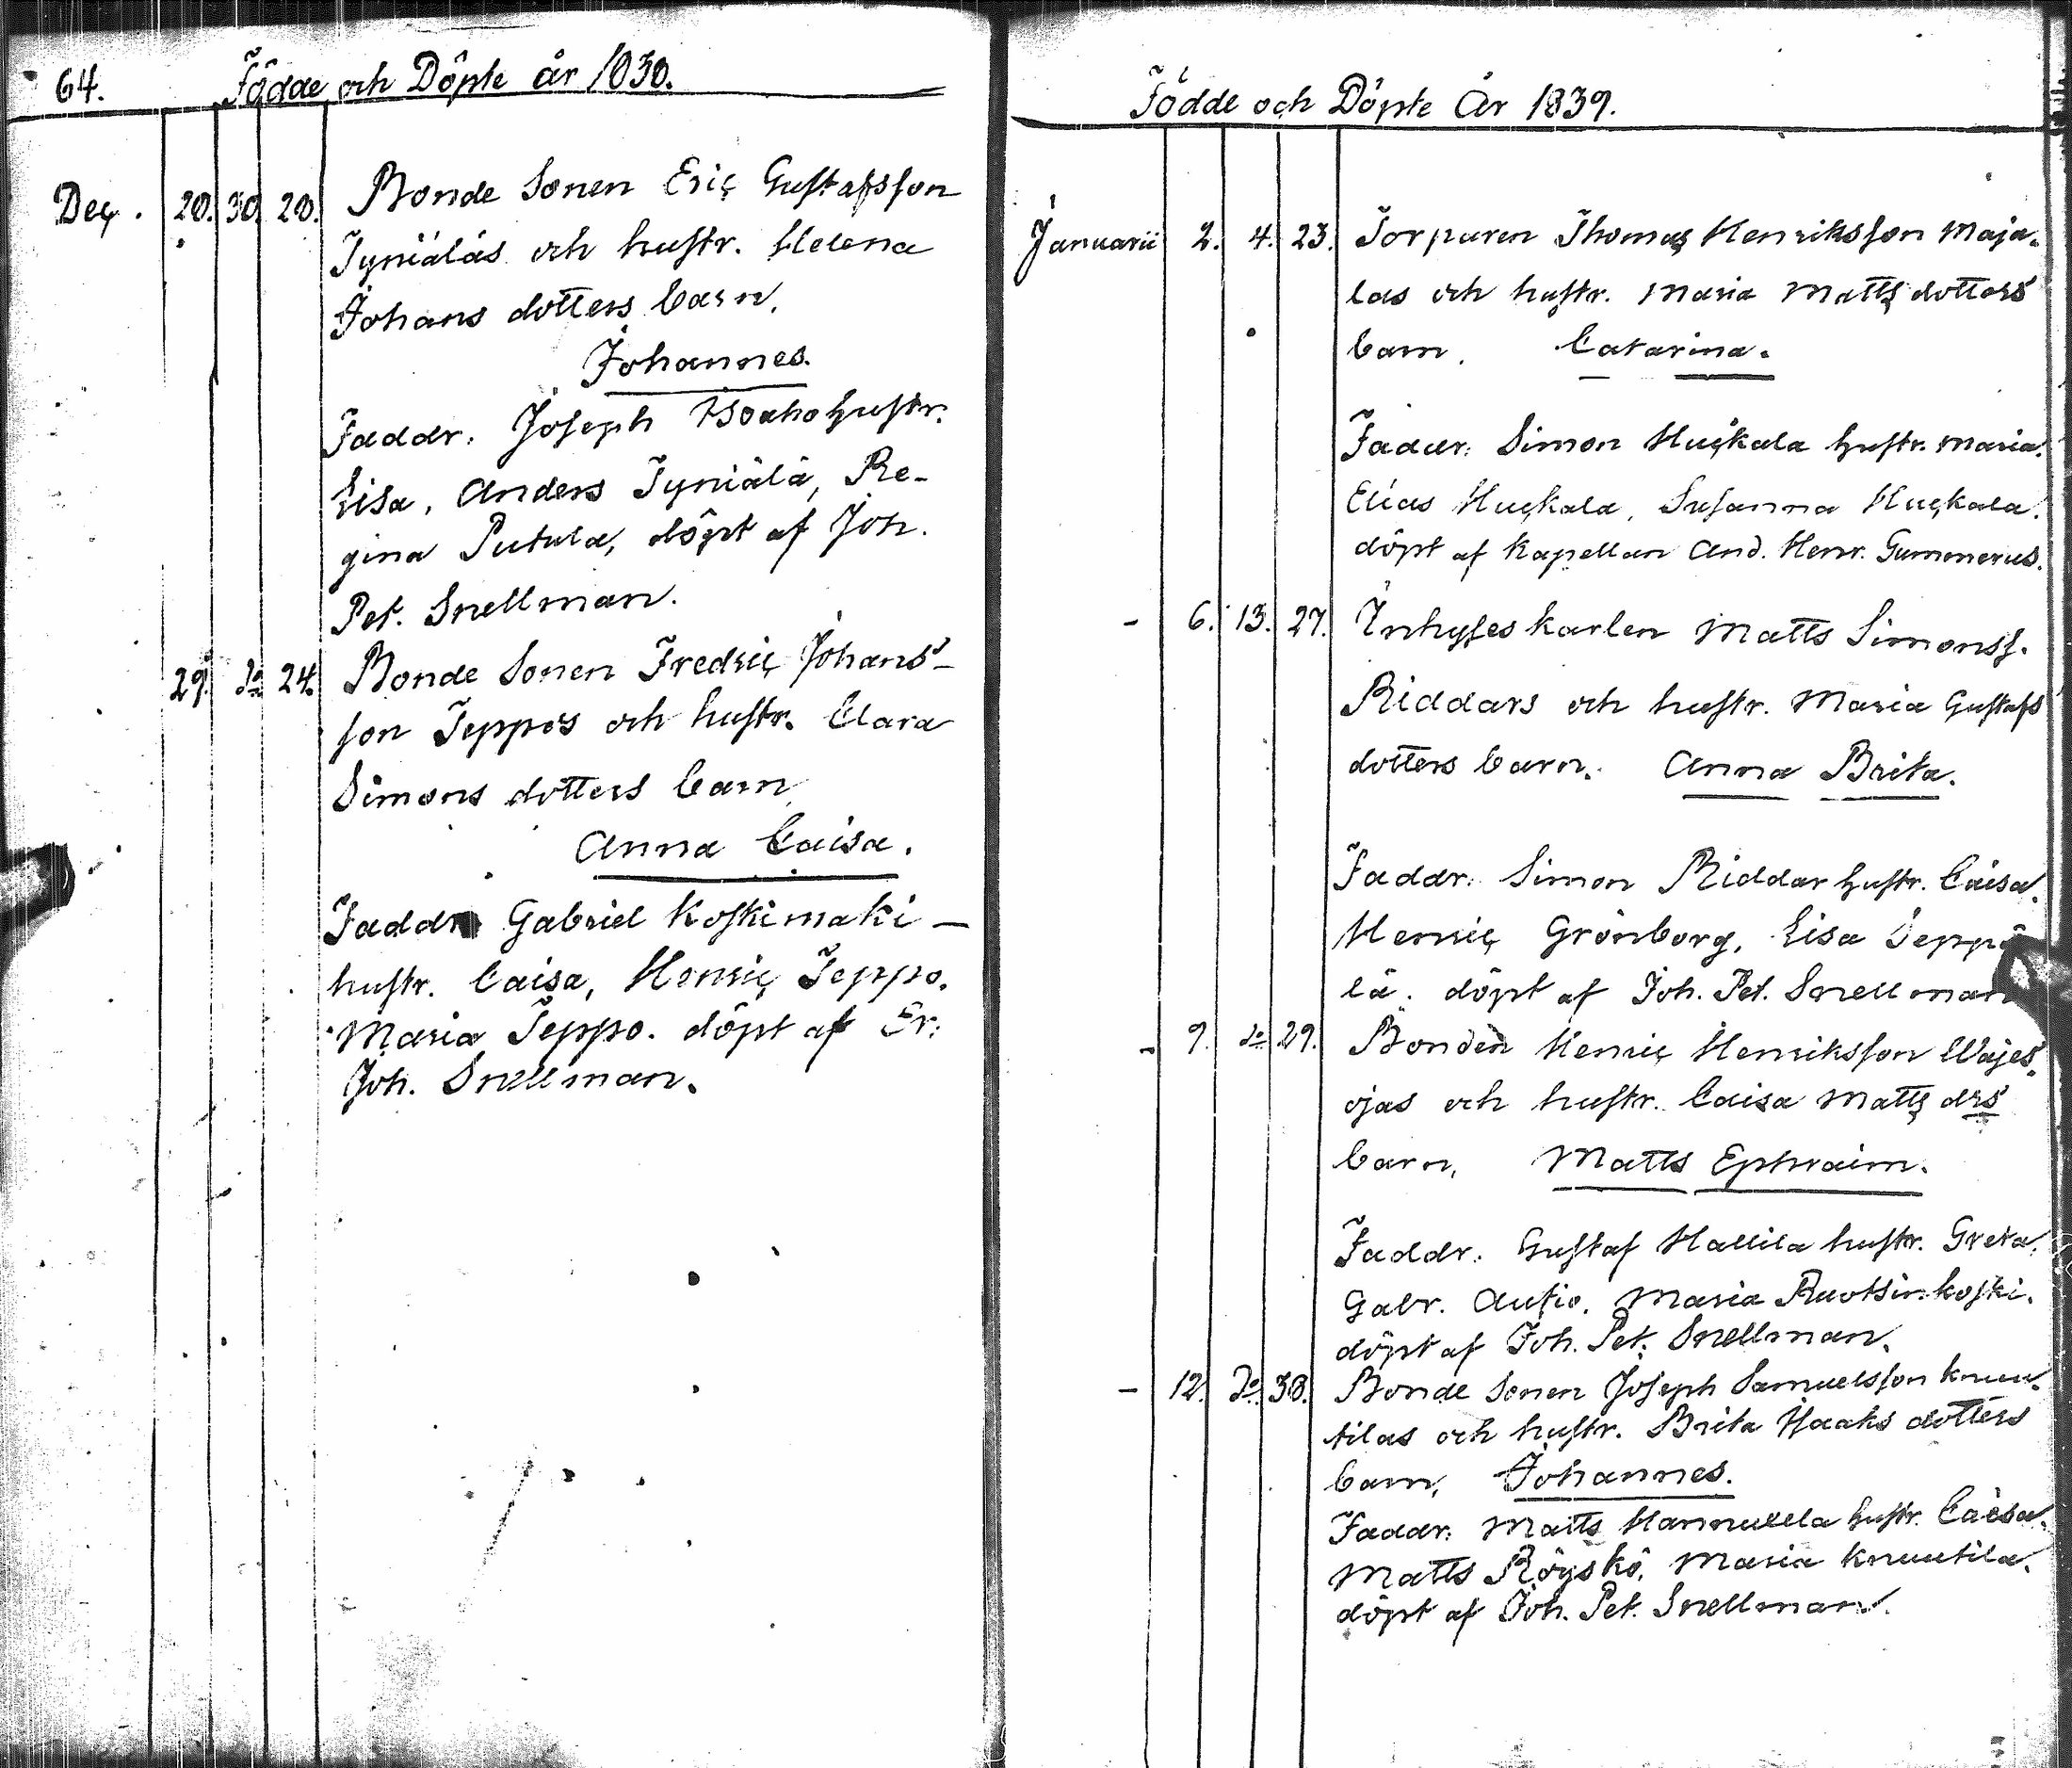 64. Födde och Döpte år 1838.
Dec. 28. 30. 28. Bonde Sonen Eric Gustafsson
Tyniäläs och hustr. Helena
Johans dotters barn,
Johannes.
Faddr. Joseph Isoaho hustr.
Lisa, Anders Tyniälä, Re-
gina Putula, döpt af Joh.
Pet. Snellman.
29. do 24. Bonde Sonen Fredric Johans-
son Jeppos och hustr. Clara
Simons dotters barn
Anna Caisa.
Faddr Gabriel Koskimäki –
hustr. Caisa, Henric Jeppo.
Maria Jeppo. döpt af Er:
Joh. Snellman.
Födde och Döpte År 1839.
Januarii 2. 4. 23. Torparen Thomas Henriksson Maja-
las och hustr. Maria Matts dotters
barn. Catarina.
Faddr: Simon Huckala hustr. Maria.
Elias Huckala, Susanna Huckala.
döpt af Kapellan And. Henr. Gummerus.
– 6. 13. 27. Inhyses karlen Matts Simonss.
Riddars och hustr. Maria Gustafs
dotters barn. Anna Brita.
Faddr: Simon Riddar hustr. Caisa,
Henric Grönborg, Lisa Seppä
lä. döpt af Joh. Pet. Snellman
– 9. do 29. Bonden Henric Henriksson Wäjes-
ojas och hustr. Caisa Matts drs
barn, Matts Ephraim.
Faddr. Gustaf Hallila hustr. Greta.
Gabr. Autio, Maria Ruotsinkoski.
döpt af Joh. Pet. Snellman.
– 12. do 38. Bonde Sonen Joseph Samuelsson Knuu-
tilas och hustr. Brita Isaaks dotters
barn, Johannes.
Faddr: Matts Hannuxela hustr. Caisa.
Matts Röyskö, Maria Knuutila.
döpt af Joh. Pet. Snellman.